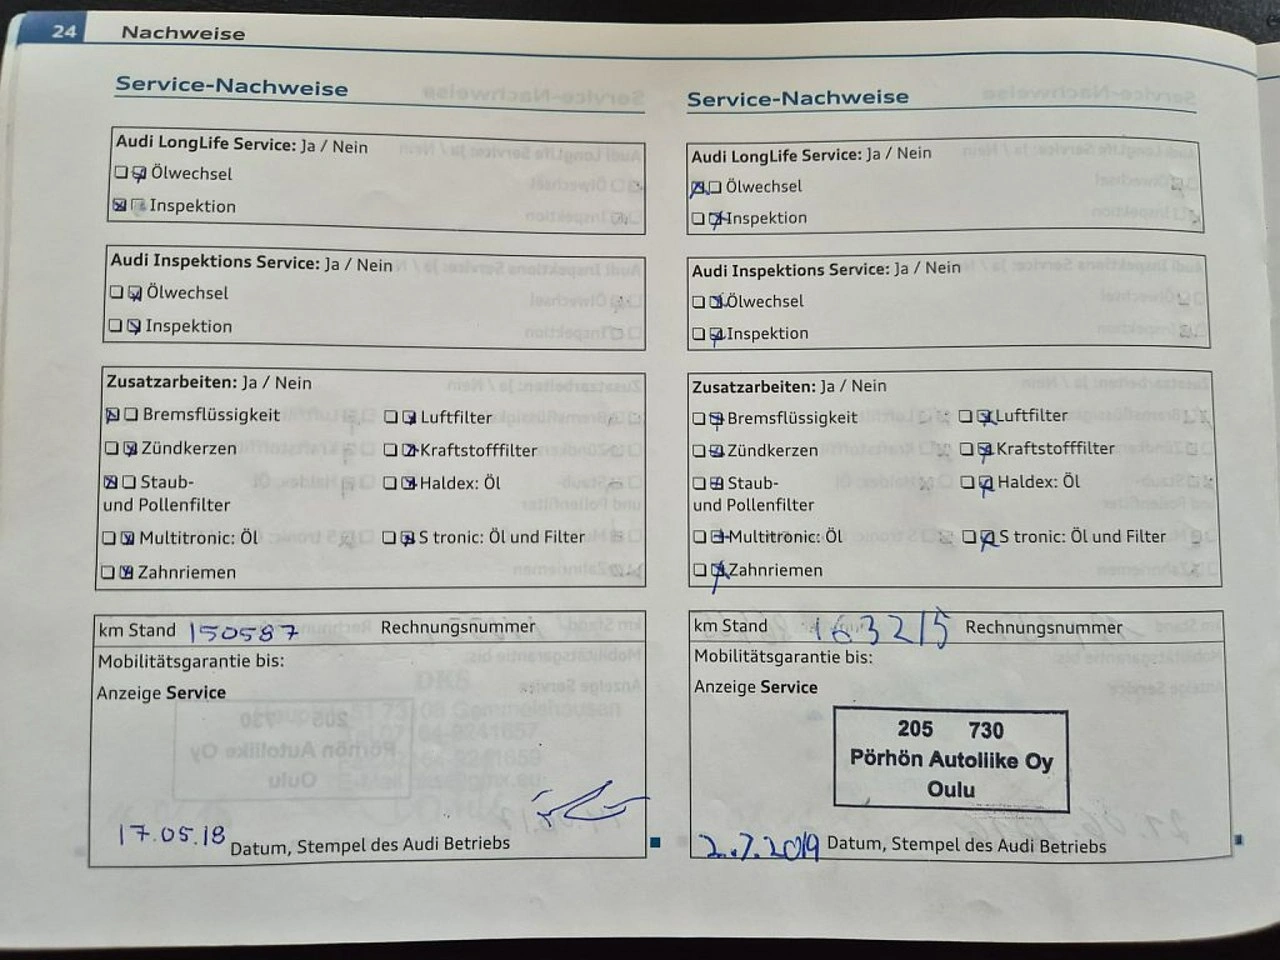 24 Nachweise
Service-Nachweise
Audi LongLife Service: Ja / Nein
Ölwechsel
Inspektion
Audi Inspektions Service: Ja / Nein
Ölwechsel
Inspektion
Zusatzarbeiten: Ja / Nein
Bremsflüssigkeit Luftfilter
Zündkerzen Kraftstofffilter
Staub- Haldex: Öl
und Pollenfilter
Multitronic: Öl S tronic: Öl und Filter
Zahnriemen
km Stand 150587 Rechnungsnummer
Mobilitätsgarantie bis:
Anzeige Service
17.05.18 Datum, Stempel des Audi Betriebs
Service-Nachweise
Audi LongLife Service: Ja / Nein
Ölwechsel
Inspektion
Audi Inspektions Service: Ja / Nein
Ölwechsel
Inspektion
Zusatzarbeiten: Ja / Nein
Bremsflüssigkeit Luftfilter
Zündkerzen Kraftstofffilter
Staub- Haldex: Öl
und Pollenfilter
Multitronic: Öl S tronic: Öl und Filter
Zahnriemen
km Stand 163215 Rechnungsnummer
Mobilitätsgarantie bis:
Anzeige Service
205 730
Pörhön Autoliike Oy
Oulu
2.7.2019 Datum, Stempel des Audi Betriebs